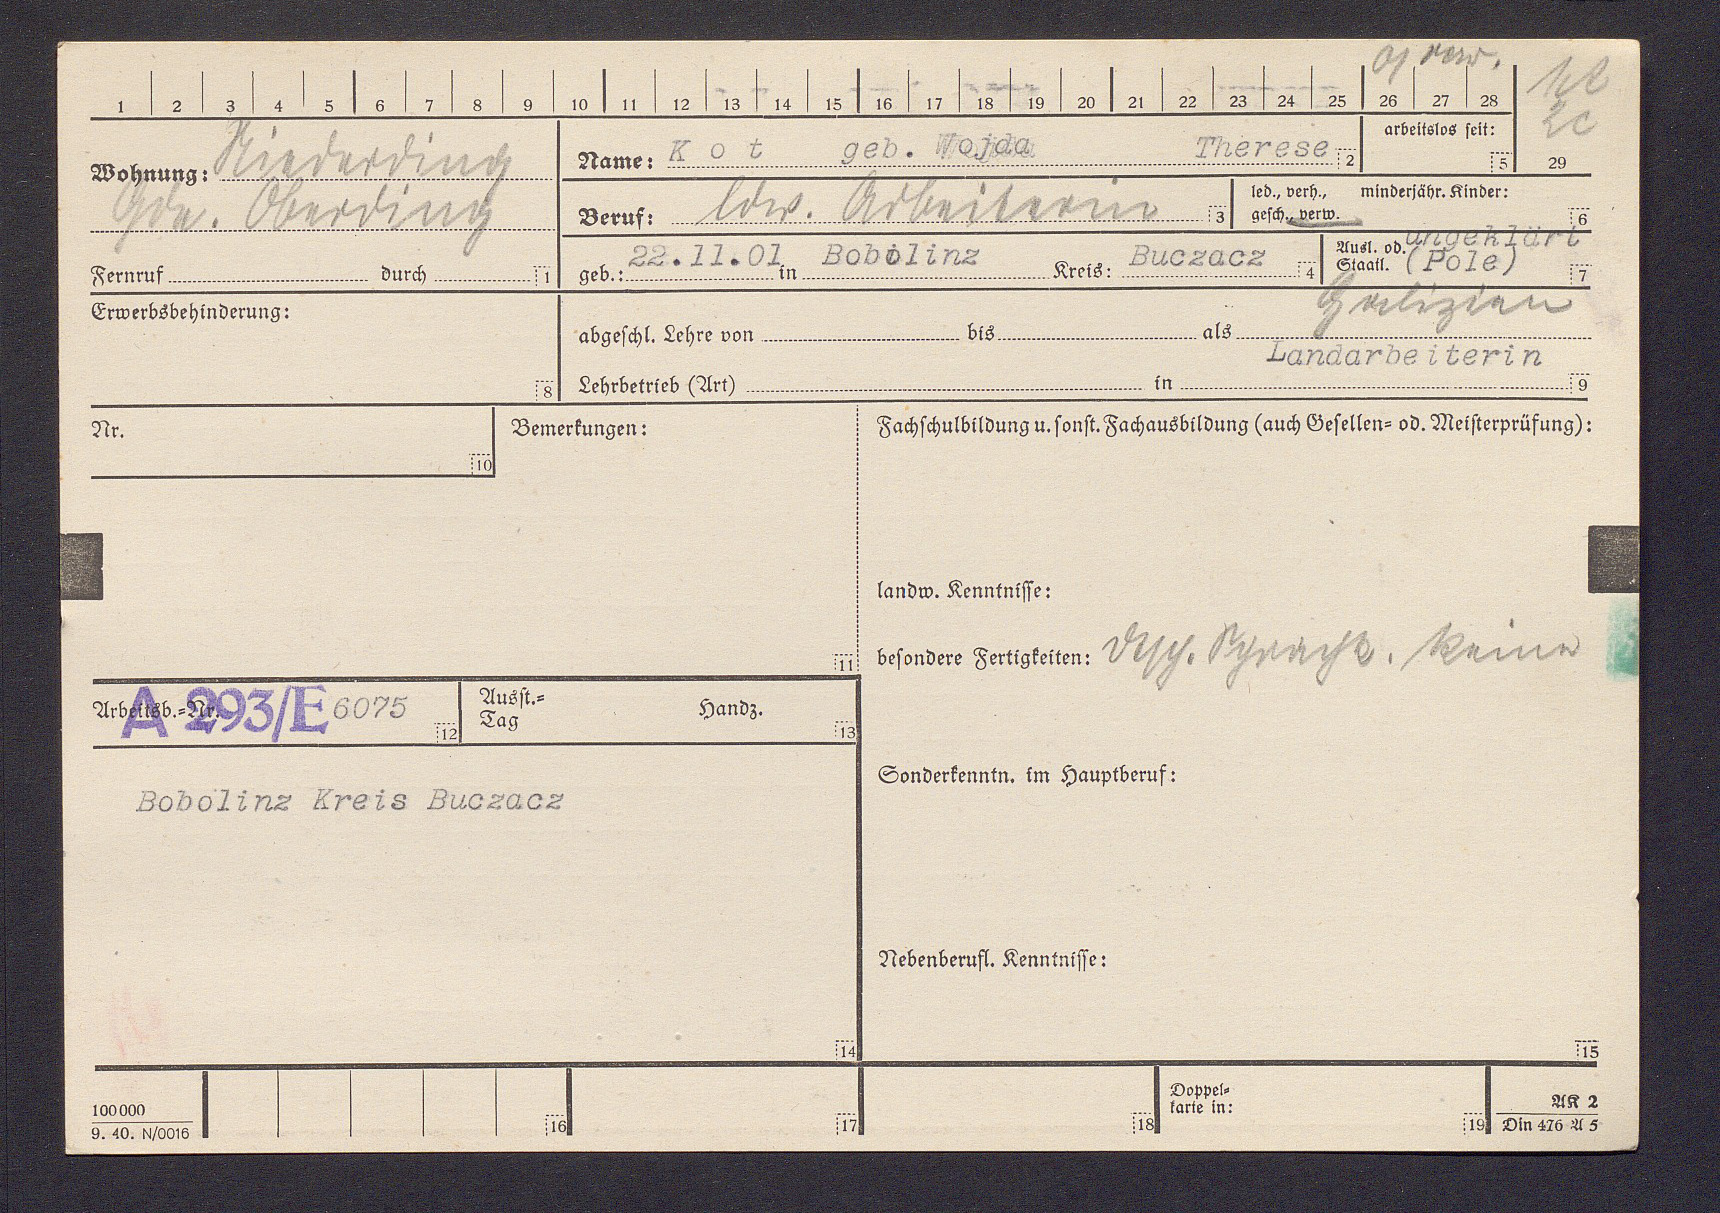 1 2 3 4 5 6 7 8 9 10 11 12 13 14 15 16 17 18 19 20 21 22 23 24 25 26 27 28
arbeitslos seit: 5 29
Wohnung: Niederding
Gde. Oberding
Fernruf durch 1
Name: K o t geb. Wojda Therese 2
Beruf: ldw. Arbeiterin 3
led., verh., minderjähr. Kinder:
gesch., verw. 6
geb.: 22.11.01 in Bobolinz Kreis: Buczacz 4
Ausl. od. ungeklärt
Staatl. (Pole) 7
Galizien
Erwerbsbehinderung: 8
abgeschl. Lehre von bis als
Landarbeiterin
Lehrbetrieb (Art) in 9
Nr. 10
Bemerkungen: 11
Fachschulbildung u. sonst. Fachausbildung (auch Gesellen= od. Meisterprüfung):
landw. Kenntnisse:
besondere Fertigkeiten: dtsch. Sprache. keine
Arbeitsb.=Nr. A 293/E 6075 12
Ausst.=
Tag Handz. 13
Sonderkenntn. im Hauptberuf:
Bobolinz Kreis Buczacz
Nebenberufl. Kenntnisse:
14 15
100000
9. 40. N/0016
16 17 18
Doppel=
karte in: 19
AK 2
Din 476 A 5